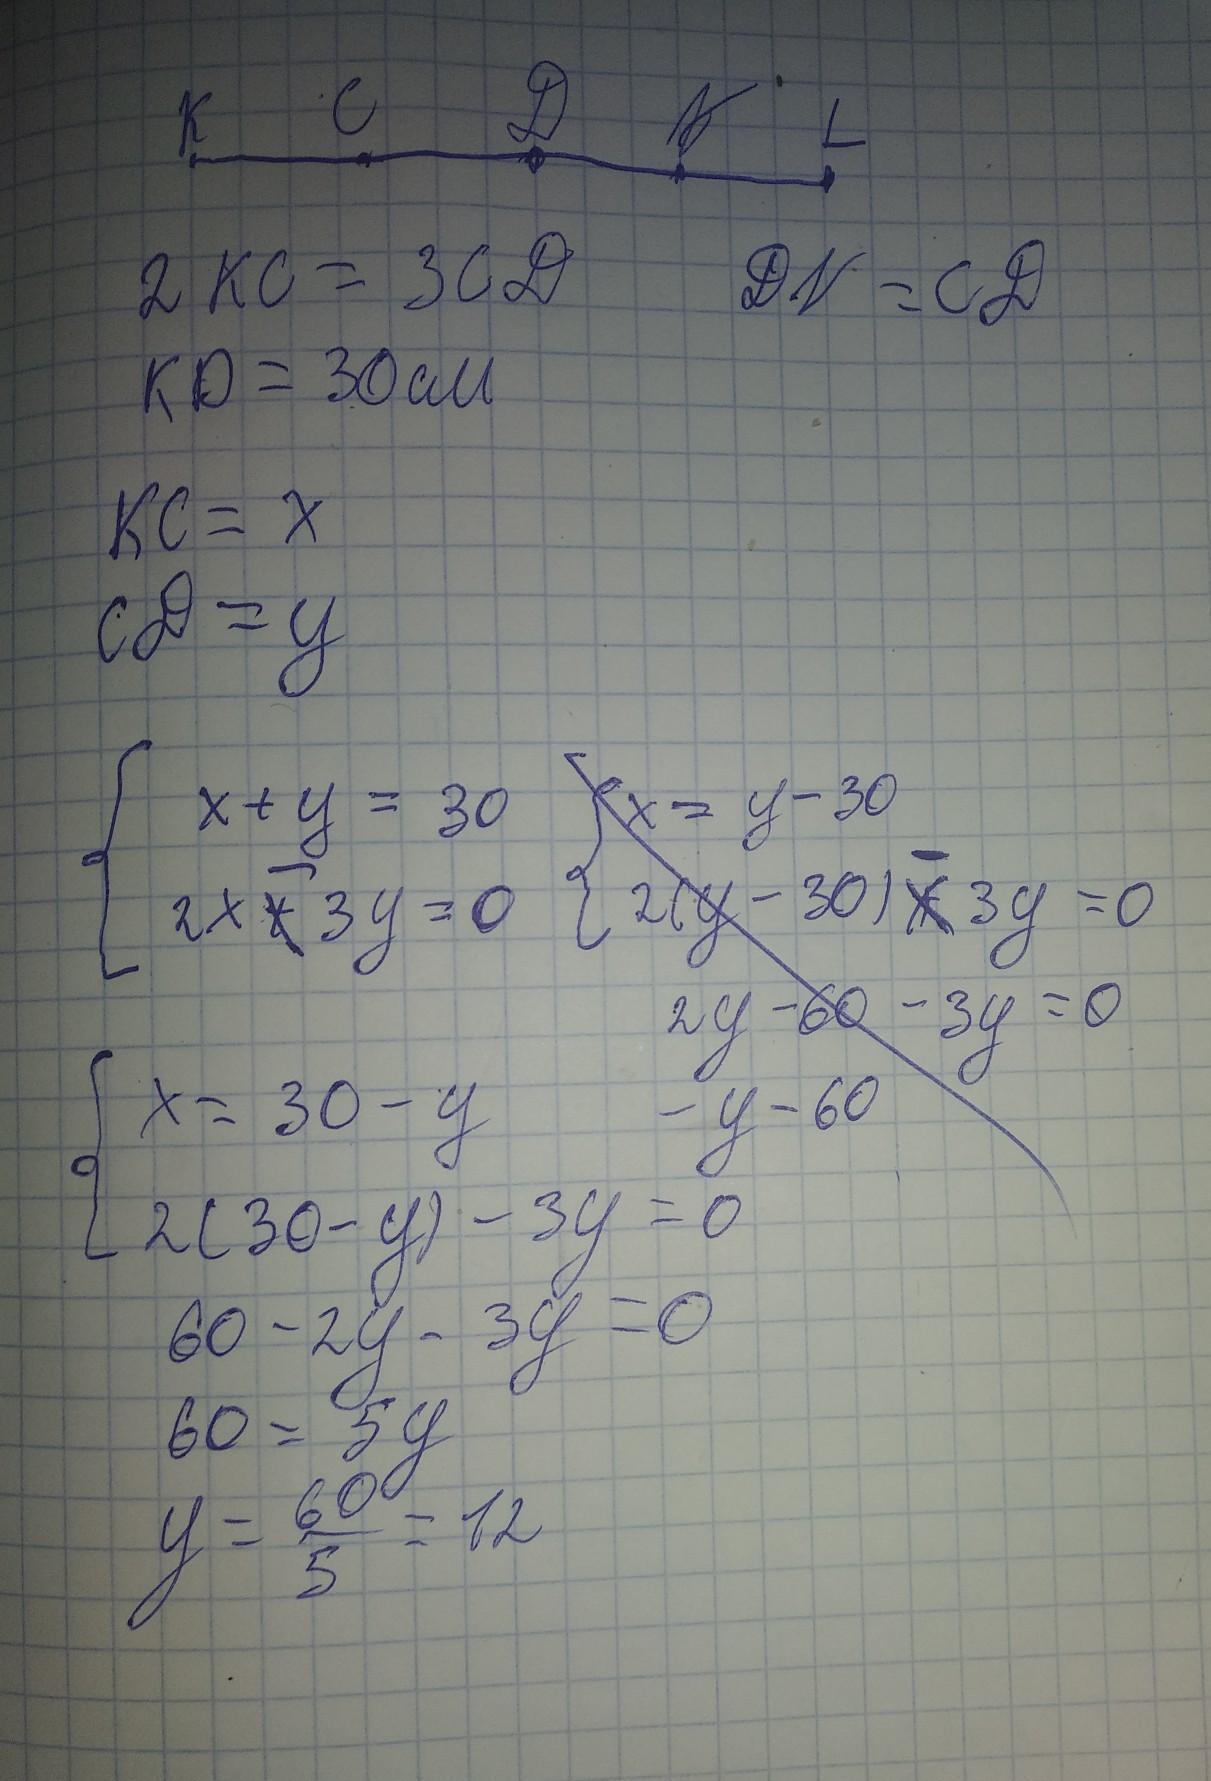 K C D N L
2KC = 3CD DN = CD
KD = 30см
KC = x
CD = y
x + y = 30 x = y - 30
2x - 3y = 0 2(y - 30) - 3y = 0
2y - 60 - 3y = 0
x = 30 - y - y - 60
2(30 - y) - 3y = 0
60 - 2y - 3y = 0
60 = 5y
y = 60/5 = 12